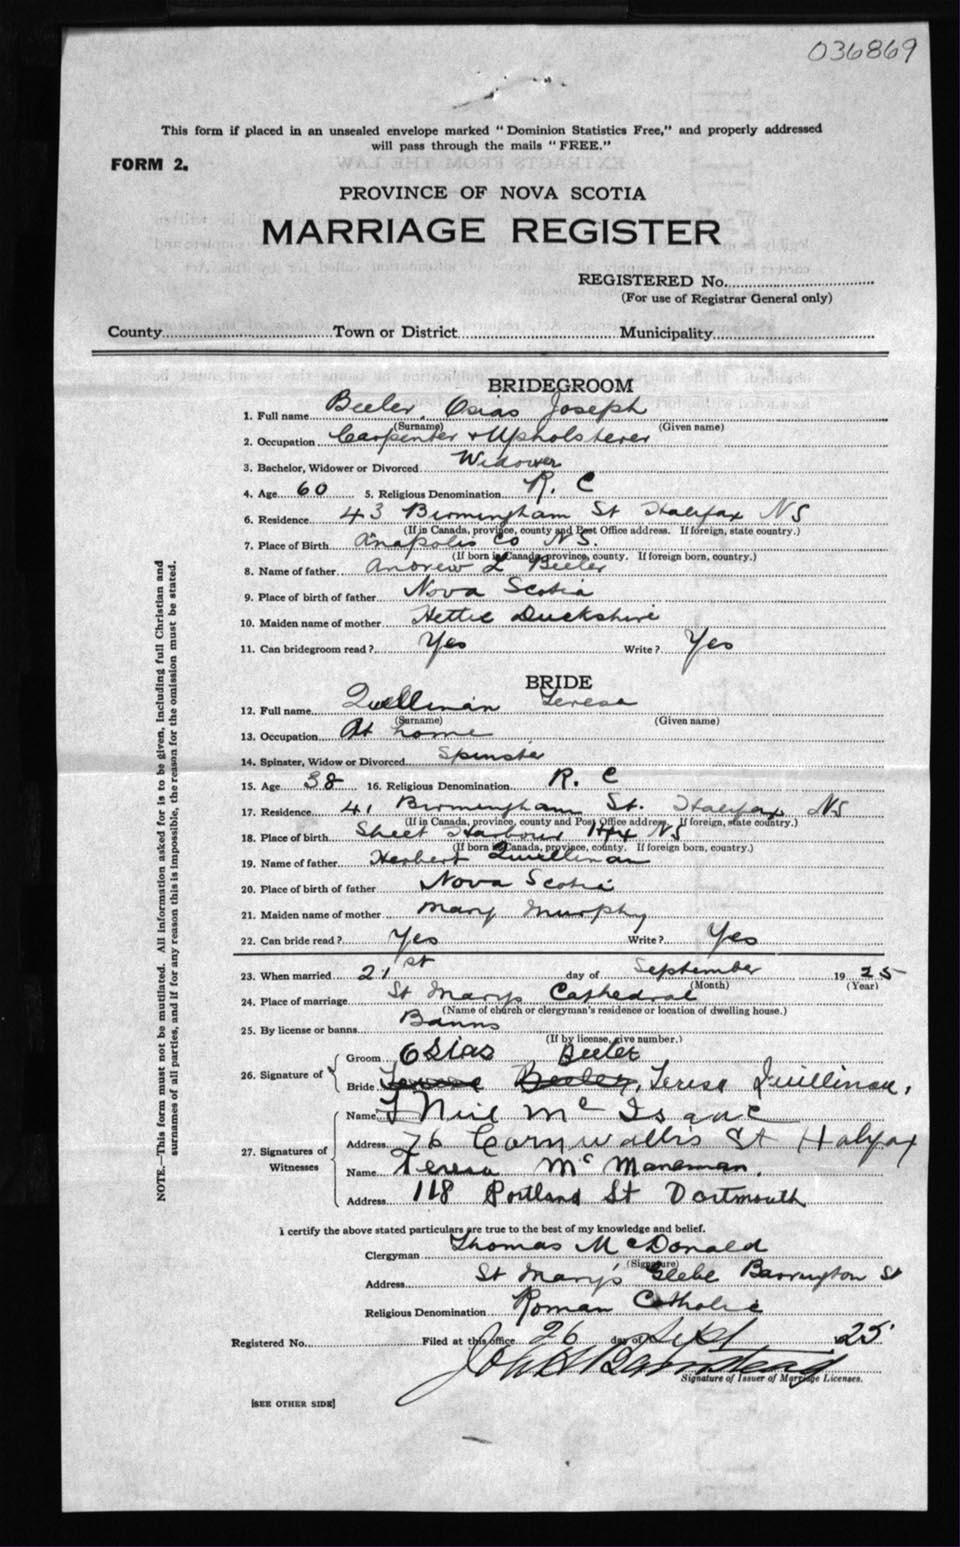 036869
This form if placed in an unsealed envelope marked "Dominion Statistics Free," and properly addressed
will pass through the mails "FREE."
FORM 2.
PROVINCE OF NOVA SCOTIA
MARRIAGE REGISTER
REGISTERED No.
(For use of Registrar General only)
County Town or District Municipality
BRIDEGROOM
1. Full name Beeler, Osias Joseph
(Surname) (Given name)
2. Occupation Carpenter & Upholsterer
3. Bachelor, Widower or Divorced Widower
4. Age 60 5. Religious Denomination R. C
6. Residence 43 Birmingham St Halifax NS
(If in Canada, province, county and Post Office address. If foreign, state country.)
7. Place of Birth Anapolis Co NS.
(If born in Canada, province, county. If foreign born, country.)
8. Name of father Andrew L Beeler
9. Place of birth of father Nova Scotia
10. Maiden name of mother Hettie Duckshire
11. Can bridegroom read? Yes Write? Yes
BRIDE
12. Full name Quillinan Teresa
(Surname) (Given name)
13. Occupation At home
14. Spinster, Widow or Divorced Spinster
15. Age 38 16. Religious Denomination R. C
17. Residence 41 Birmingham St. Halifax NS
(If in Canada, province, county and Post Office address. If foreign, state country.)
18. Place of birth Sheet Harbour Hfx NS
(If born in Canada, province, county. If foreign born, country.)
19. Name of father Herbert Quillinan
20. Place of birth of father Nova Scotia
21. Maiden name of mother Mary Murphy
22. Can bride read? Yes Write? Yes
23. When married 21st day of September 1925
(Month) (Year)
24. Place of marriage St Marys Cathedral
(Name of church or clergyman's residence or location of dwelling house.)
25. By license or banns Banns
(If by license, give number.)
26. Signature of
Groom Osias Beeler
Bride Teresa Beeler, Teresa Quillinan,
27. Signatures of Witnesses
Name J Neil McIsaac
Address 76 Cornwallis St Halifax
Name Teresa McManeman.
Address 118 Portland St Dartmouth
I certify the above stated particulars are true to the best of my knowledge and belief.
Clergyman Thomas McDonald
(Signature)
Address St Mary's Glebe Barrington St
Religious Denomination Roman Catholic
Registered No. Filed at this office 26 day of Sept 25
John Barnstead
Signature of Issuer of Marriage Licenses.
[SEE OTHER SIDE]
NOTE.—This form must not be mutilated. All information asked for is to be given, including full Christian and
surnames of all parties, and if for any reason this is impossible, the reason for the omission must be stated.